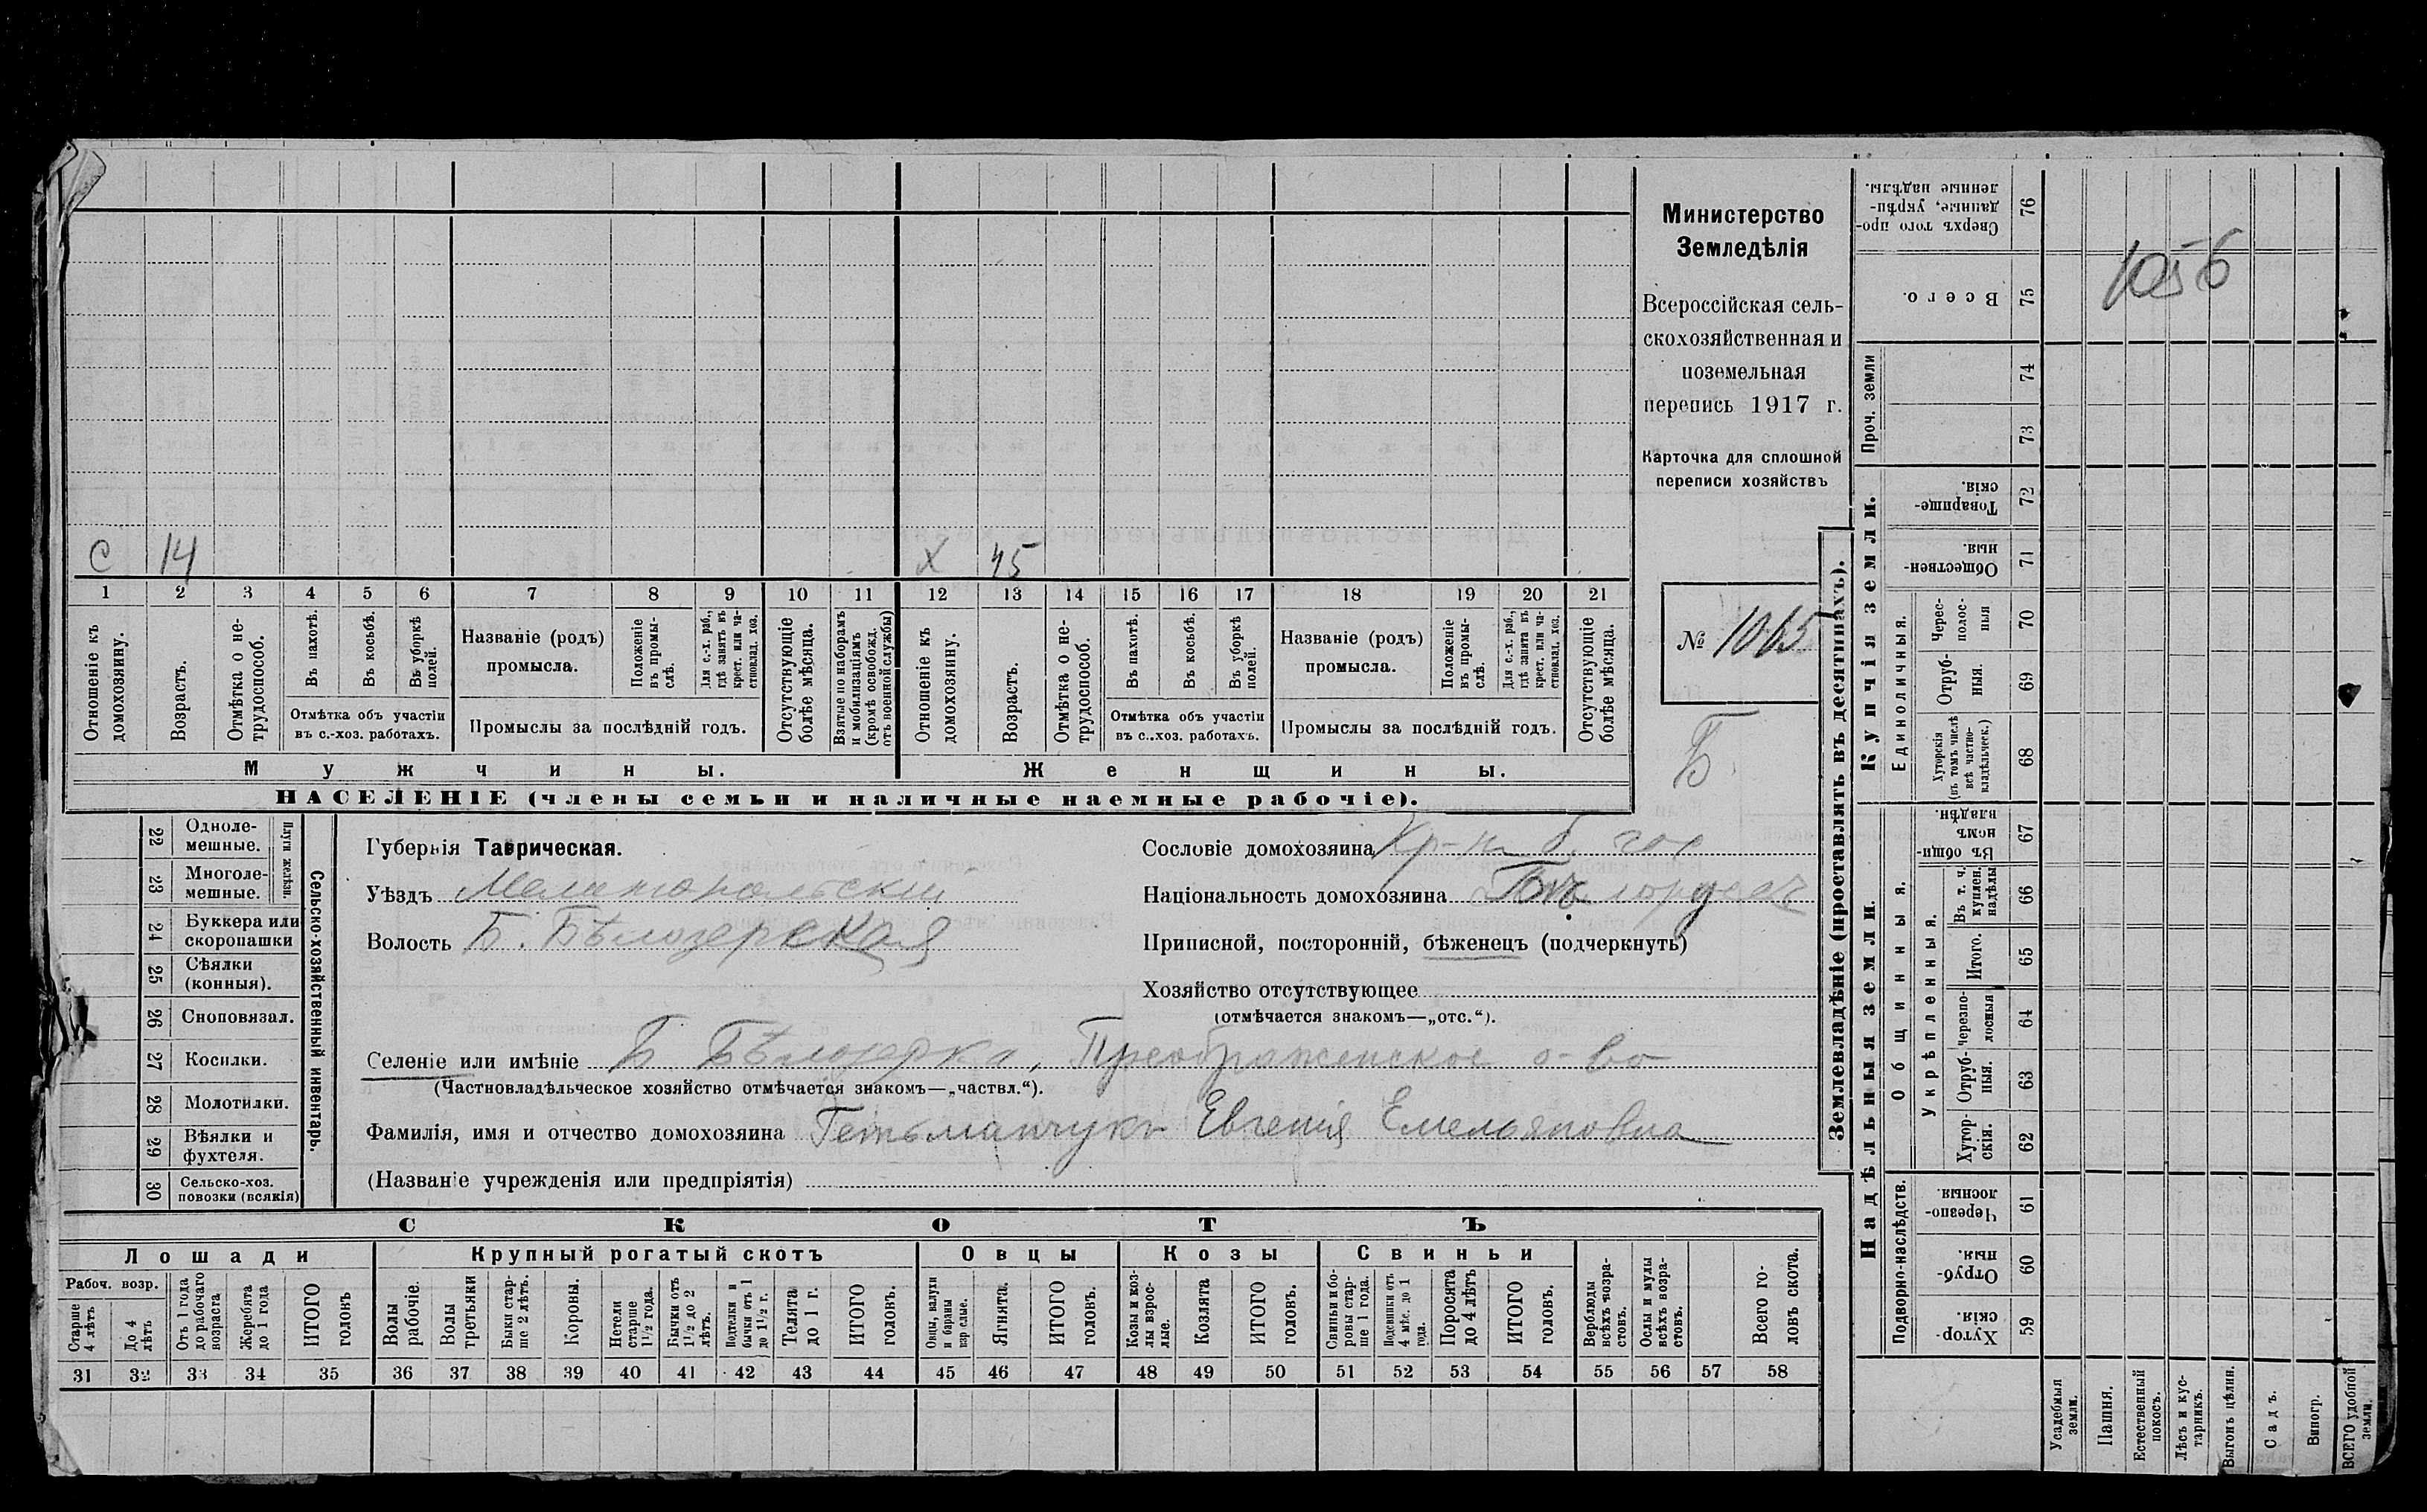 С 14 Х 45
1 2 3 4 5 6 7 8 9 10 11 12 13 14 15 16 17 18 19 20 21
Отношеніе къ домохозяину.
Возрастъ.
Отмѣтка о не-
трудоспособ.
Въ пахотѣ.
Въ косьбѣ.
Въ уборкѣ полей.
Отмѣтка объ участіи
въ с.-хоз. работахъ.
Названіе (родъ)
промысла.
Положеніе въ промы-
слѣ.
Для с.-х. раб.,
гдѣ занятъ въ
крест. или ча-
стновлад. хоз.
Промыслы за послѣдній годъ.
Отсутствующіе
болѣе мѣсяца.
Взятые по наборамъ
и мобилизаціямъ
(кромѣ освобожд.
отъ военной службы)
Отношеніе къ
домохозяину.
Возрастъ.
Отмѣтка о не-
трудоспособ.
Въ пахотѣ.
Въ косьбѣ.
Въ уборкѣ
полей.
Отмѣтка объ участіи
въ с..хоз. работахъ.
Названіе (родъ)
промысла.
Положеніе
въ промы-
слѣ.
Для с.-х. раб.,
гдѣ занята въ
крест. или ча-
стновлад. хоз.
Промыслы за послѣдній годъ.
Отсутствующіе
болѣе мѣсяца.
Мужчины.
Женщины.
НАСЕЛЕНІЕ (члены семьи и наличные наемные рабочіе).
Министерство
Земледѣлія
Всероссійская сель-
скохозяйственная и
поземельная
перепись 1917 г.
Карточка для сплошной
переписи хозяйствъ
№ 1065
Б.
22 Одноле-
мешные.
23 Многоле-
мешные.
Плуги желѣзн.
24 Буккера или
скоропашки
25 Сѣялки
(конныя).
26 Сноповязал.
27 Косилки.
28 Молотилки.
29 Вѣялки и
фухтеля.
30 Сельско-хоз.
повозки (всякія)
Сельско-хозяйственный инвентарь.
Губернія Таврическая.
Уѣздъ Мелитопольскій
Волость Б. Бѣлозерская
Сословіе домохозяина Кр-н
Національность домохозяина
Приписной, посторонній, бѣженецъ (подчеркнуть)
Хозяйство отсутствующее
(отмѣчается знакомъ—„отс.“).
Селеніе или имѣніе Б Бѣлозерка, Преображенское о-во
(Частновладѣльческое хозяйство отмѣчается знакомъ—„частвл.“).
Фамилія, имя и отчество домохозяина Гетьманчукъ Евгенія Емельяновна
(Названіе учрежденія или предпріятія)
СКОТЪ
Лошади
Рабоч. возр.
Старше
4 лѣтъ
До 4
лѣтъ
Отъ 1 года
до рабочаго
возраста
Жеребята
до 1 года
ИТОГО
головъ
Крупный рогатый скотъ
Волы
рабочіе.
Волы
третьяки
Быки стар-
ше 2 лѣтъ.
Коровы.
Нетели
старше
1½ года.
Бычки отъ
1½ до 2
лѣтъ.
Подтелки и
бычки отъ 1
до 1½ г.
Телята
до 1 г.
ИТОГО
головъ.
Овцы
Овцы, валухи
и бараны
взрослые.
Ягнята.
ИТОГО
головъ.
Козы
Козы и коз-
лы взрос-
лые.
Козлята
ИТОГО
головъ.
Свиньи
Свиньи и бо-
ровы стар-
ше 1 года.
Подсвинки отъ
4 мѣс. до 1
года.
Поросята
до 4 лѣтъ
ИТОГО
головъ.
Верблюды
всѣхъ возра-
стовъ.
Ослы и мулы
всѣхъ возра-
стовъ.
Всего го-
ловъ скота.
31 32 33 34 35 36 37 38 39 40 41 42 43 44 45 46 47 48 49 50 51 52 53 54 55 56 57 58
Землевладѣніе (проставлять въ десятинахъ).
Купчія земли.
Надѣльныя земли.
Сверхъ того про-
данные, укрѣп-
ленные надѣлы.
76
Всего.
75
Проч. земли
74
73
Товарище-
скія.
72
Обществен-
ныя.
71
Единоличныя.
Черес-
полос-
ныя
70
Отруб-
ныя.
69
Хуторскія
(въ томъ числѣ
всѣ частно-
владѣльческ.)
68
Въ общи-
номъ
владѣн.
67
Общинныя.
Укрѣпленныя.
Въ т. ч.
куплен.
надѣлы
66
Итого.
65
черезпо-
лосныя
64
Отруб-
ныя.
63
Хутор-
скія.
62
Подворно-наслѣдств.
Черезпо-
лосныя.
61
Отруб-
ныя.
60
Хутор-
скія.
59
1056
Усадебныя
земли.
Пашня.
Естественный
покосъ.
Лѣсъ и кус-
тарникъ.
Выгонъ цѣлин.
Садъ.
Виногр.
ВСЕГО удобной
земли.